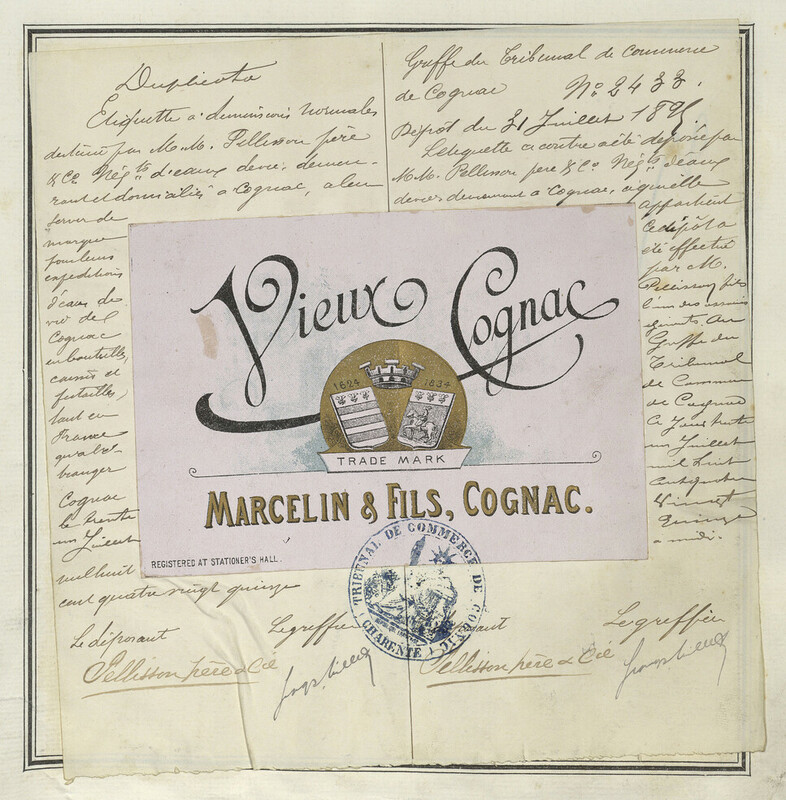 Duplicata
Etiquette à dimensions normales
destinée par M.M. Pellisson père
& Co. Négts d'eaux de vie, demeu-
rant et domiciliés à Cognac, à leur
servir de
marque
pour leurs
expéditions
d'eaux de
vie de
Cognac
en bouteilles,
caisses et
futailles,
tant en
France
qu'à l'é-
tranger
Cognac
le trente
un Juillet
mil huit
cent quatre vingt quinze
Le déposant Le greffier
Pellisson père & Cie
Greffe du Tribunal de Commerce
de Cognac No. 2433.
Dépôt du 31 Juillet 1895
L'etiquette ci contre a été déposée par
M.M. Pellisson père & Co. Négts d'eaux
devies demeurant à Cognac,
appartient
Ce dépôt a
été effectué
par M.
Pellisson fils
l'un des
gérants. Au
Greffe du
Tribunal
de Commer
de Cognac
Ce Jour trente
un Juillet
mil huit
cent quatre
Vingt
Quinze
à midi.
Le déposant Le greffier
Pellisson père & Cie
Vieux Cognac
1624 1834
TRADE MARK
MARCELIN & FILS, COGNAC.
REGISTERED AT STATIONER'S HALL.
TRIBUNAL DE COMMERCE DE COGNAC
CHARENTE